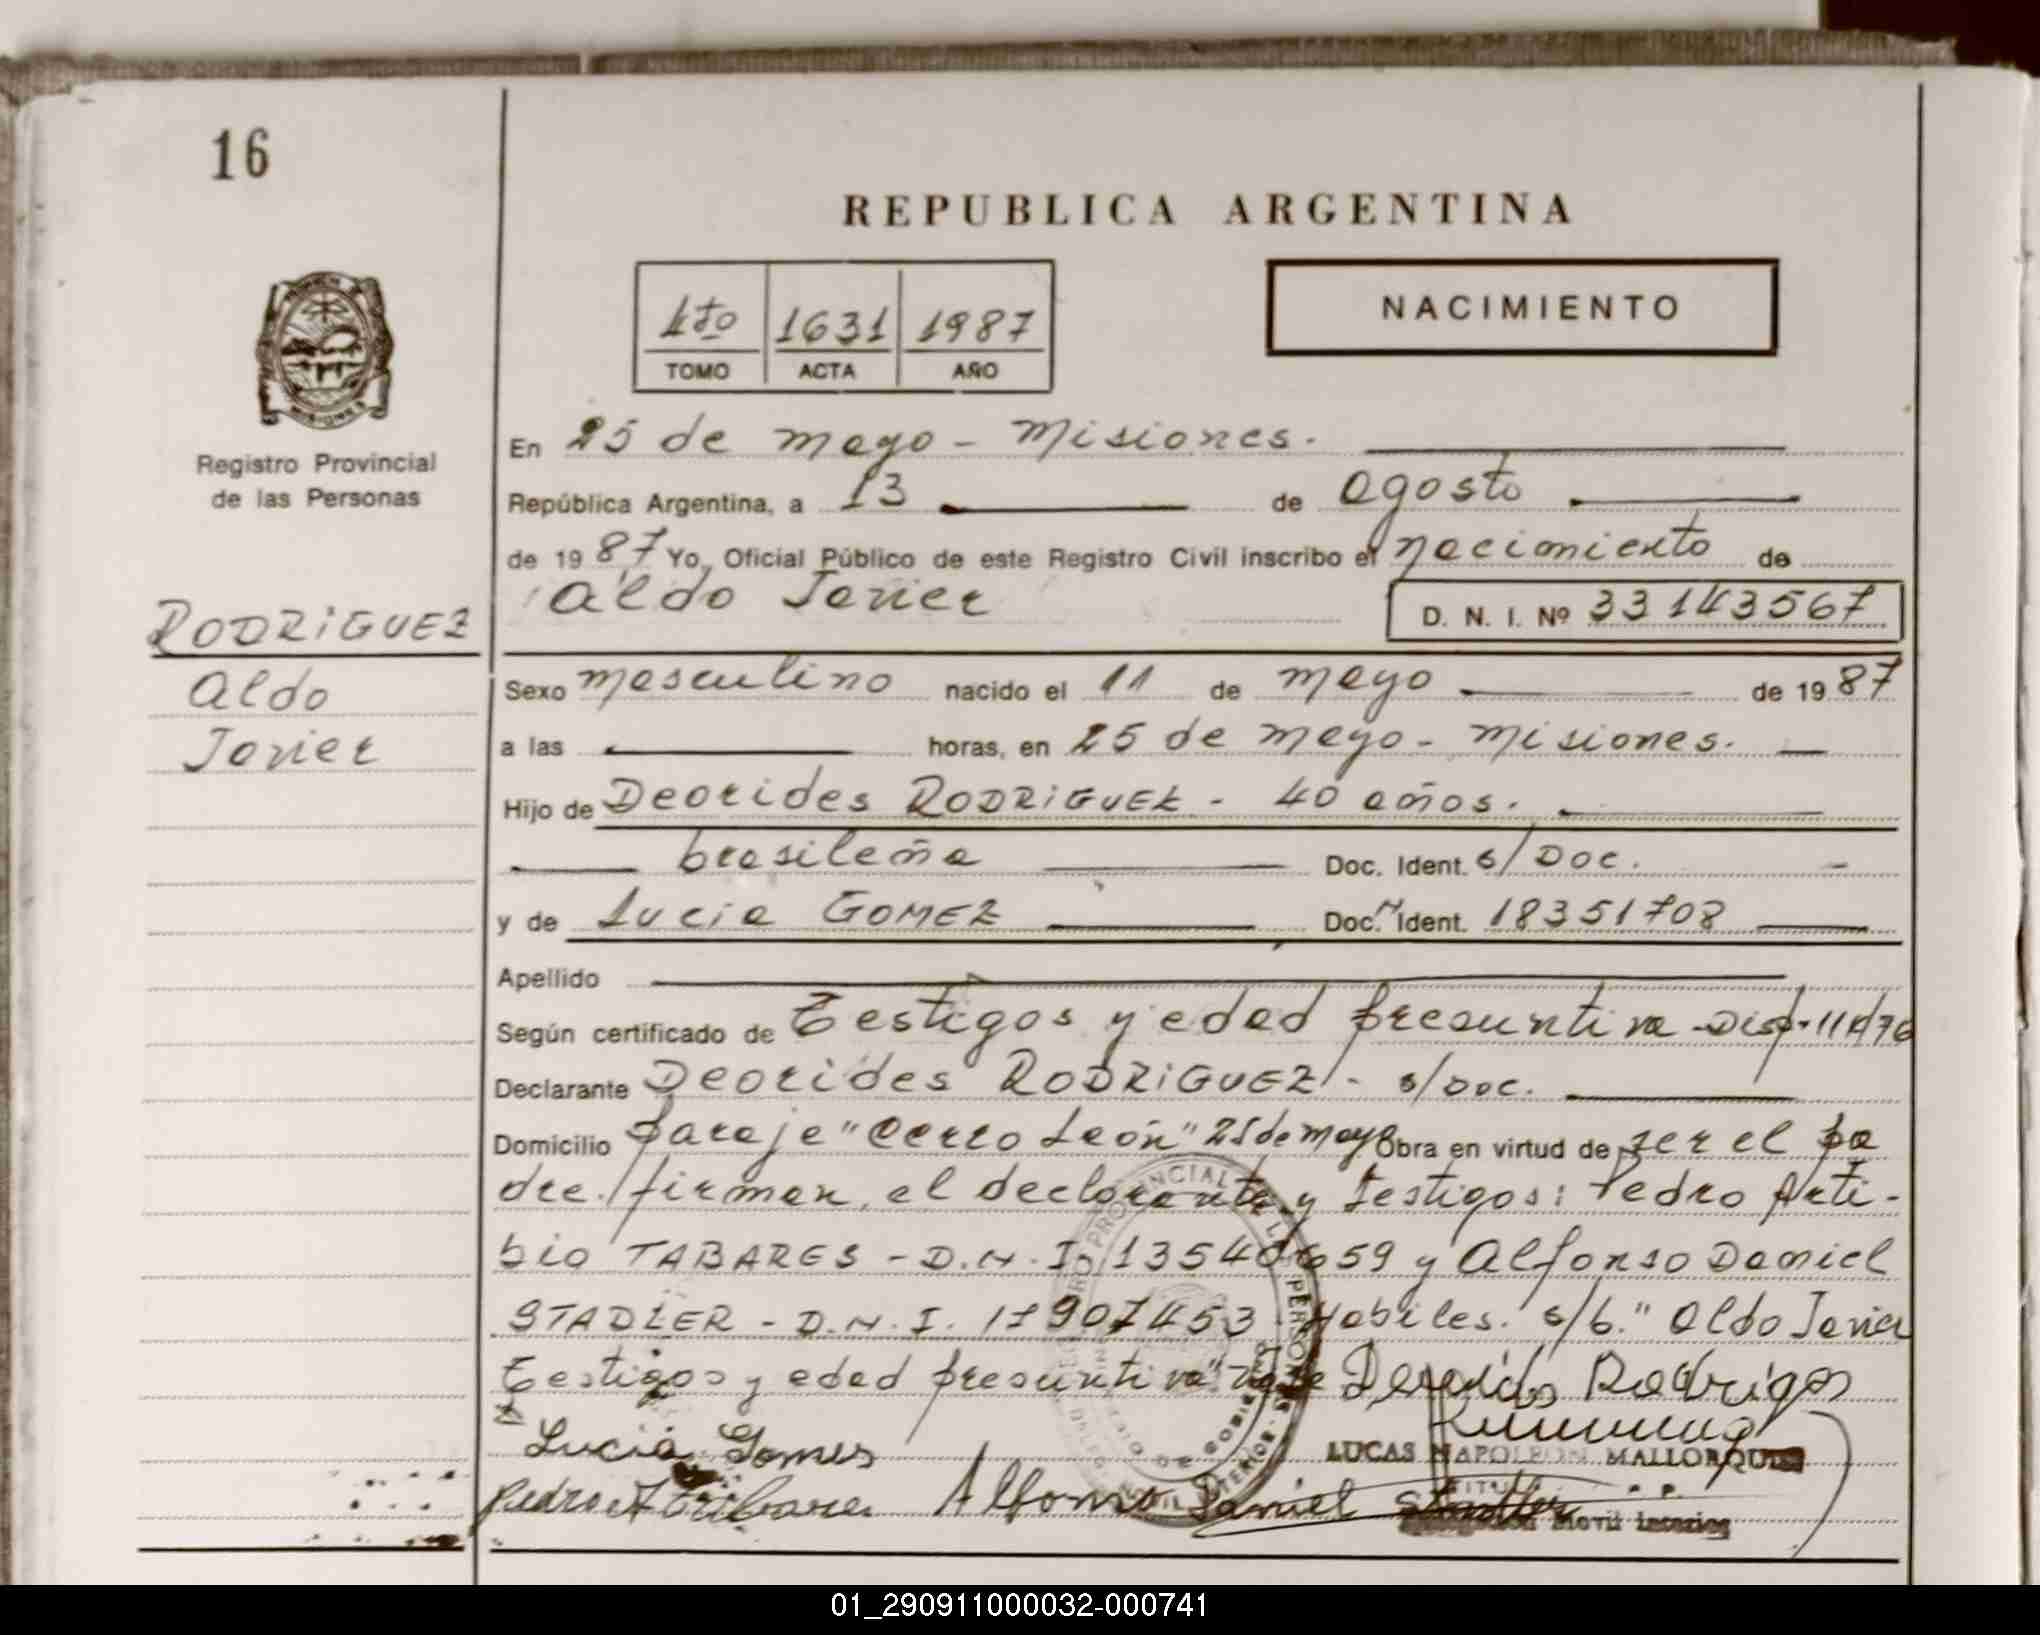 16
REPUBLICA ARGENTINA
4to 1631 1987
TOMO ACTA AÑO
NACIMIENTO
MISIONES
Registro Provincial
de las Personas
RODRIGUEZ
Aldo
Javier
En 25 de mayo - Misiones.
República Argentina, a 13 de agosto
de 1987 Yo, Oficial Público de este Registro Civil inscribo el nacimiento de
Aldo Javier D. N. I. Nº 33143567
Sexo masculino nacido el 11 de mayo de 1987
a las horas, en 25 de mayo - Misiones.
Hijo de Deorides RODRIGUEZ - 40 años.
brasileña Doc. Ident. s/Doc.
y de Lucia GOMEZ Doc. Ident. 18351708
Apellido
Según certificado de Testigos y edad presuntiva - Disp.
Declarante Deorides RODRIGUEZ - s/Doc.
Domicilio paraje "Cerro León" 25 de mayo Obra en virtud de ser el pa
dre. firman, el declarante y testigos: Pedro Arti-
bio TABARES - D.N.I. y Alfonso Daniel
STADLER - D.N.I. 17907453 Habiles. s/b." Aldo Javier
Testigos y edad presuntiva" Vale Rodrigos
Lucia Gomes
LUCAS NAPOLEON MALLORQUIN
Pedro A Alfonso Daniel Stadler
Movil Interior
01_290911000032-000741